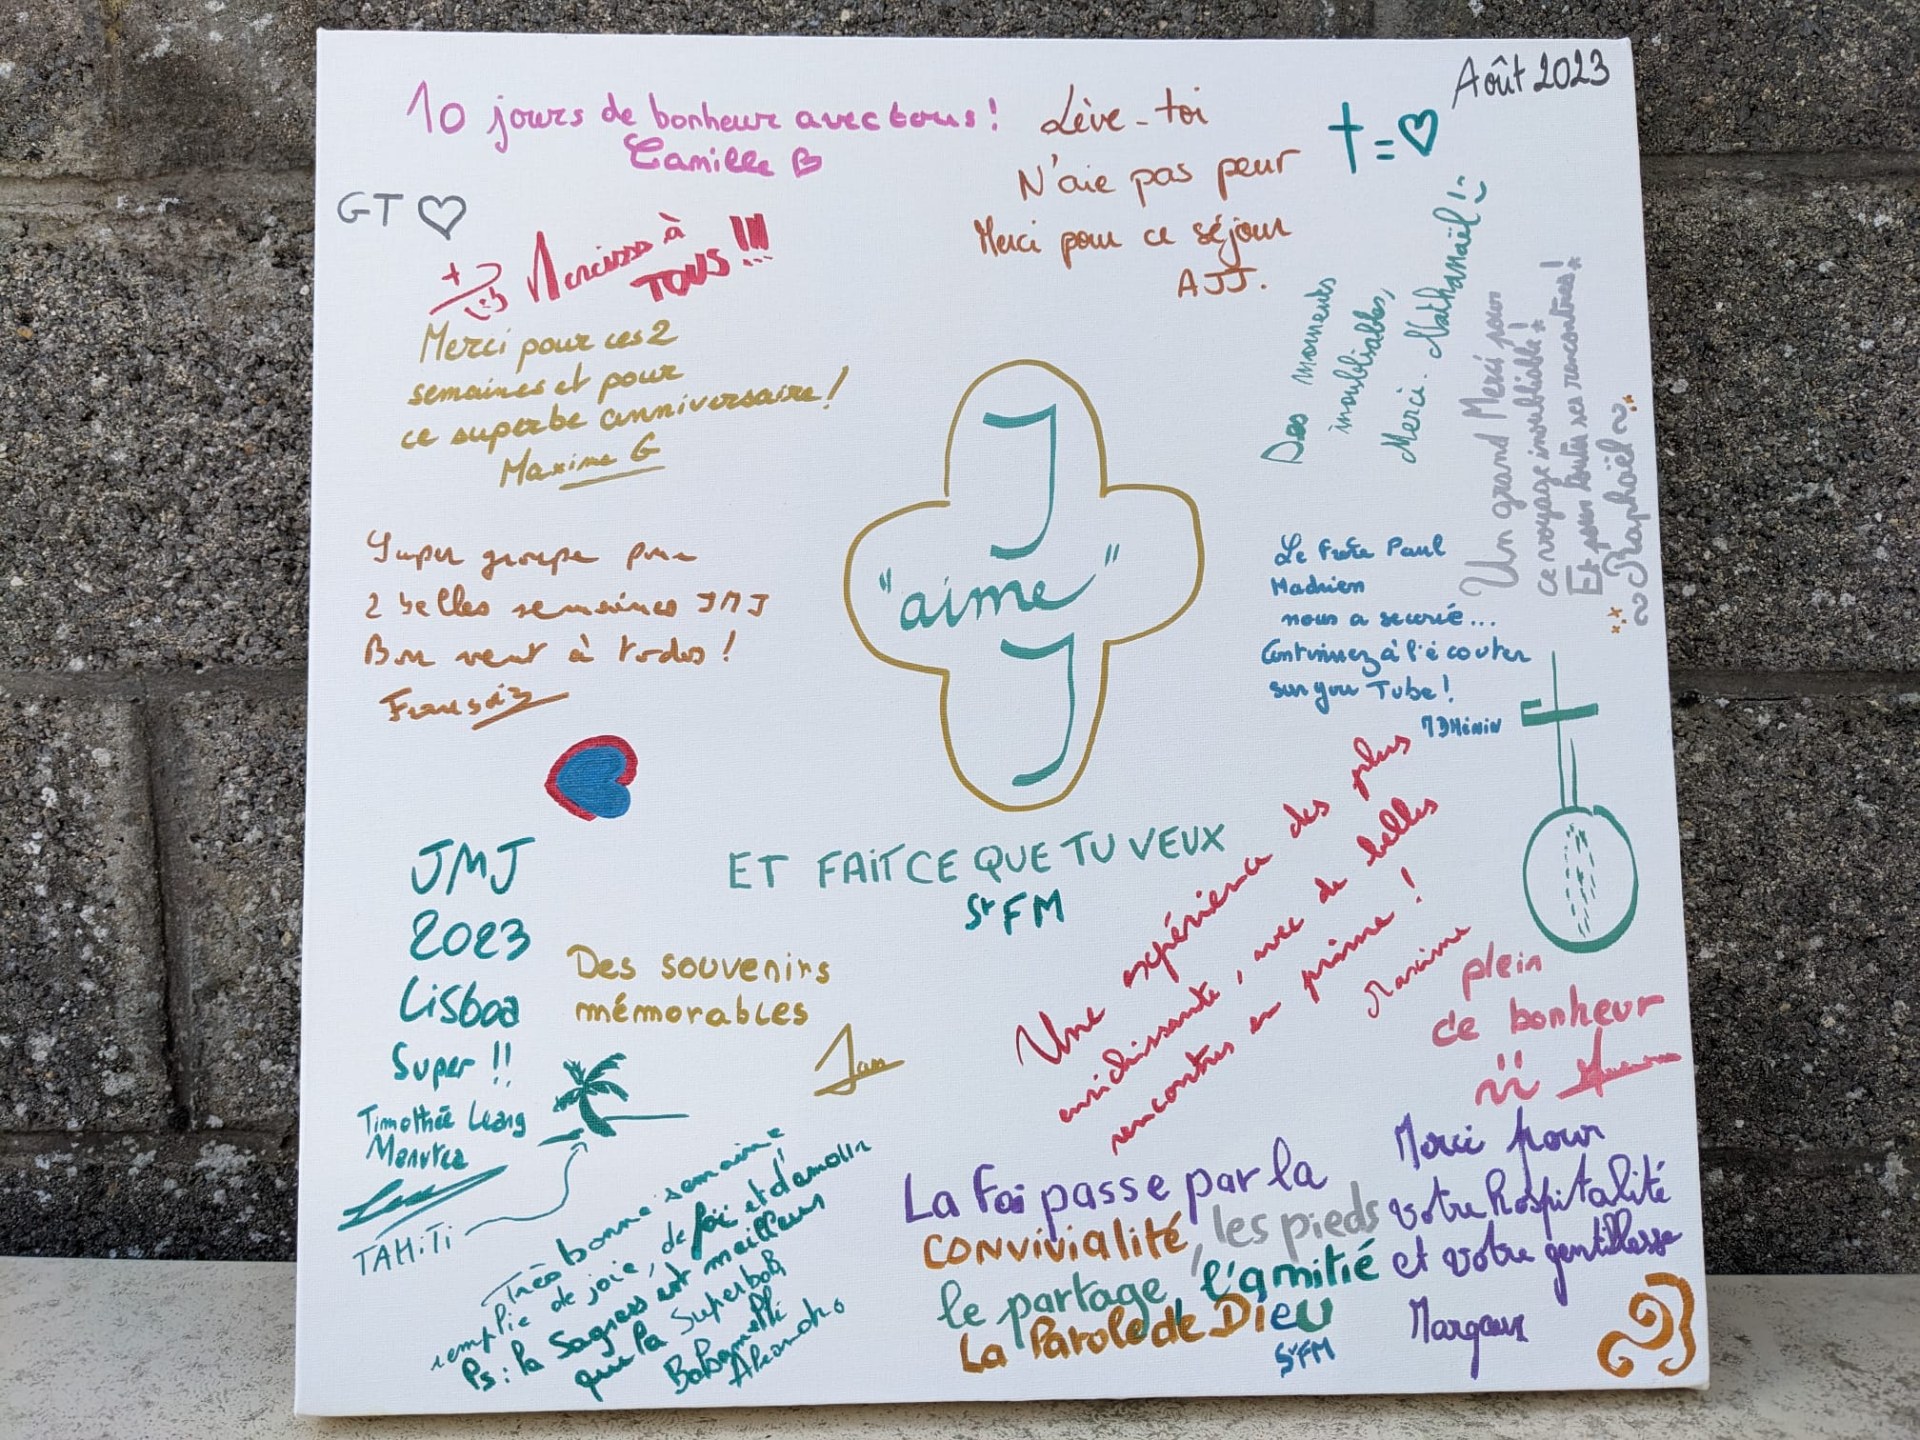 Août 2023
10 jours de bonheur avec tous !
Camille
Lève-toi
N'aie pas peur
Merci pour ce séjour
AJJ.
† = ♡
GT ♡
à
TOUS !!!
Merci pour ces 2
semaines et pour
ce superbe anniversaire !
Maxime G
Des moments
inoubliables,
Merci. Nathanaël !
Un grand Merci pour
ce voyage inoubliable !
Et pour toutes ses rencontres !
~ Raphaël ~
J
"aime"
J
Super groupe pour
2 belles semaines JMJ
Bon vent à todos !
François
Le Frère Paul
Madrien
nous a
Continuez à l'écouter
sur you Tube !
ET FAIT CE QUE TU VEUX
Sr FM
JMJ
2023
Lisboa
Super !!
Timothée
TAHiTi
Des souvenirs
mémorables
Une expérience des plus
enrichissante, avec de belles
rencontres en prime !
Maxime
plein
de bonheur
Très bonne semaine
remplie de joie, de foi et d'amour
Ps : la Sagres est meilleure
que la Superbock
La Foi passe par la
convivialité, les pieds
le partage, l'amitié
La Parole de Dieu
Sr FM
Merci pour
votre hospitalité
et votre gentillesse
Margaux